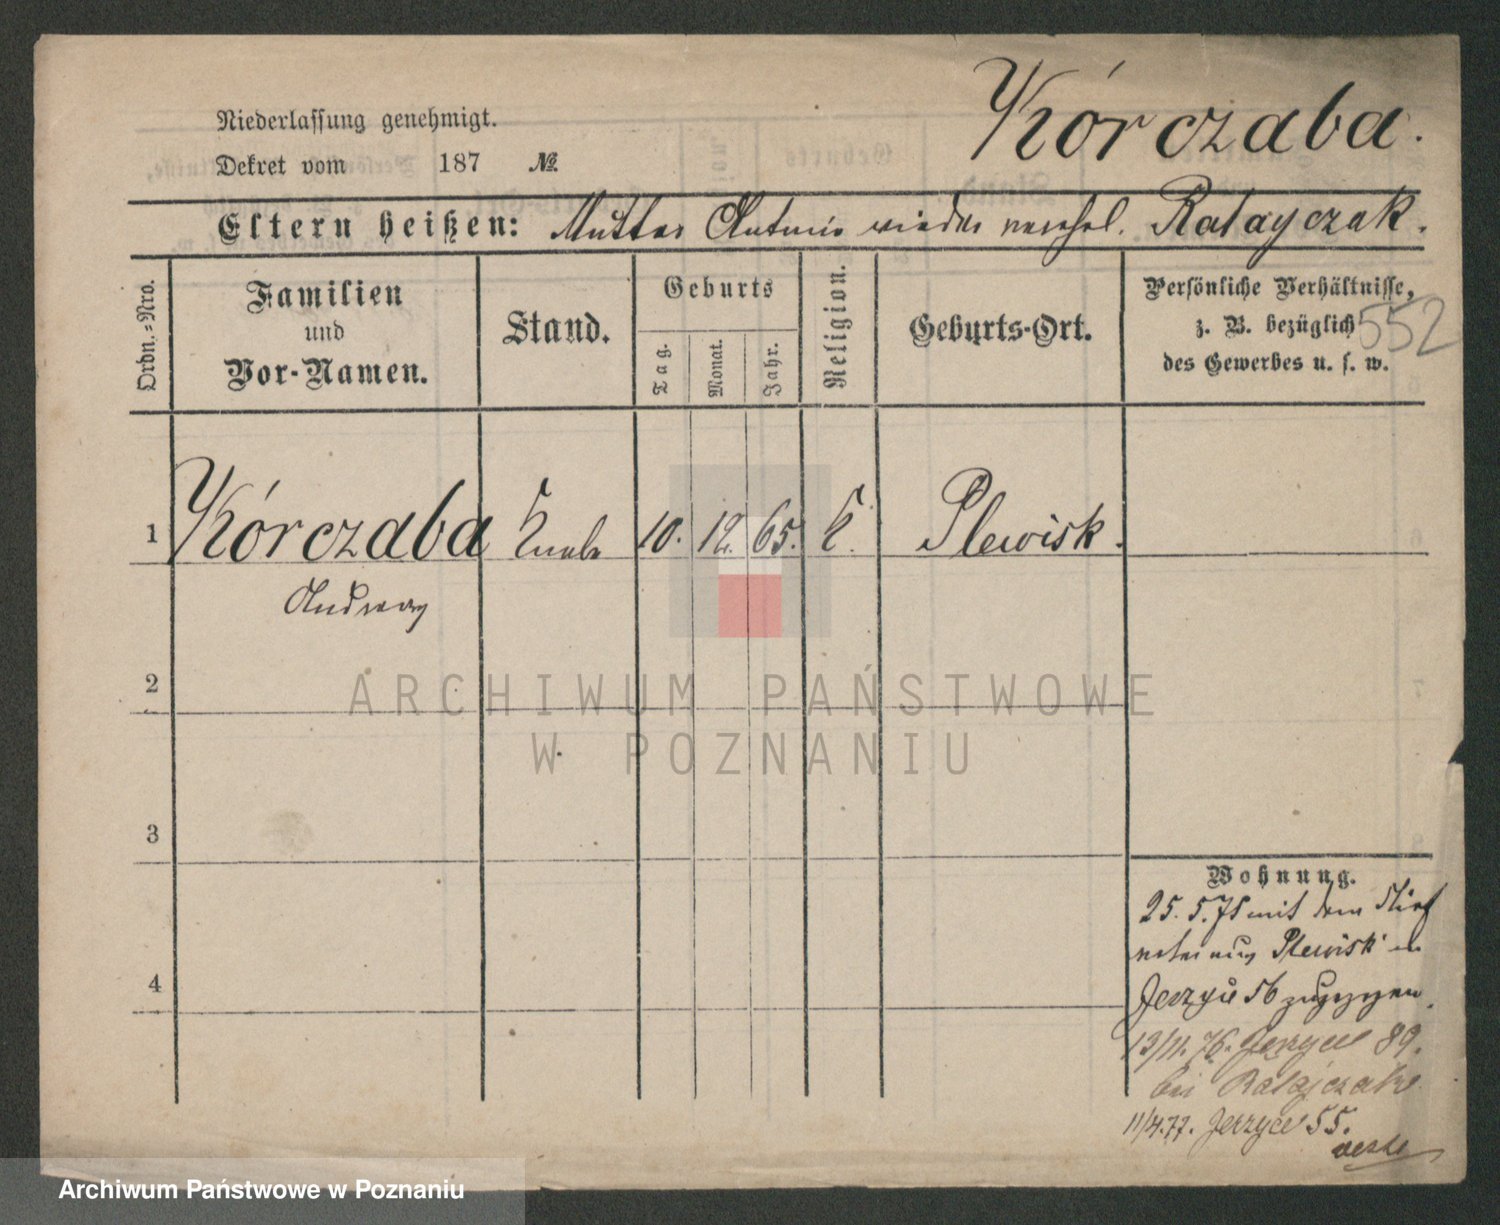 Kórczaba.
Niederlassung genehmigt.
Dekret vom 187 №
Eltern heißen: Mutter Antonie wieder verehel. Ratayczak.
Ordn.-Nro.
Familien
und
Vor-Namen.
Stand.
Geburts
Tag.
Monat.
Jahr.
Religion.
Geburts-Ort.
Persönliche Verhältnisse,
z. B. bezüglich
des Gewerbes u. s. w.
552
1 Kórczaba Knabe 10. 12. 65. k. Plewisk.
Andreas
2
3
4
Wohnung.
25. 5. 75 mit dem Stief
vater aus Plewisk in
Jerzyce 56 zugezogen.
13/11. 76. Jerzyce 89.
bei Ratajczak
11/4. 77. Jerzyce 55.
ARCHIWUM PAŃSTWOWE
W POZNANIU
Archiwum Państwowe w Poznaniu